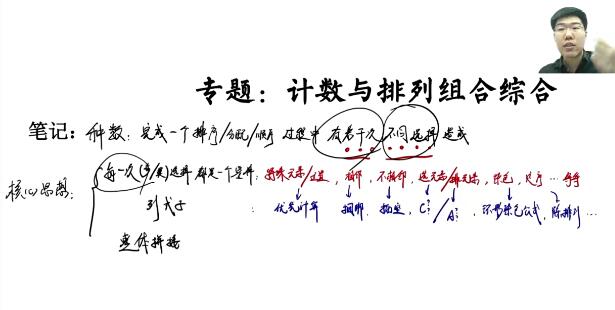 专题：计数与排列组合综合
笔记：种数：完成一个排序/分配/顺序 过程中 有若干次 不同选择 造成
核心思路：每一次(步/类)选择 都是一个步骤：特殊元素/位置，相邻，不相邻，选元素/排元素，染色，尺序…等等
列式子：优先计算 捆绑，插空，C?/A?，环形染色公式，除排列…
整体拼接